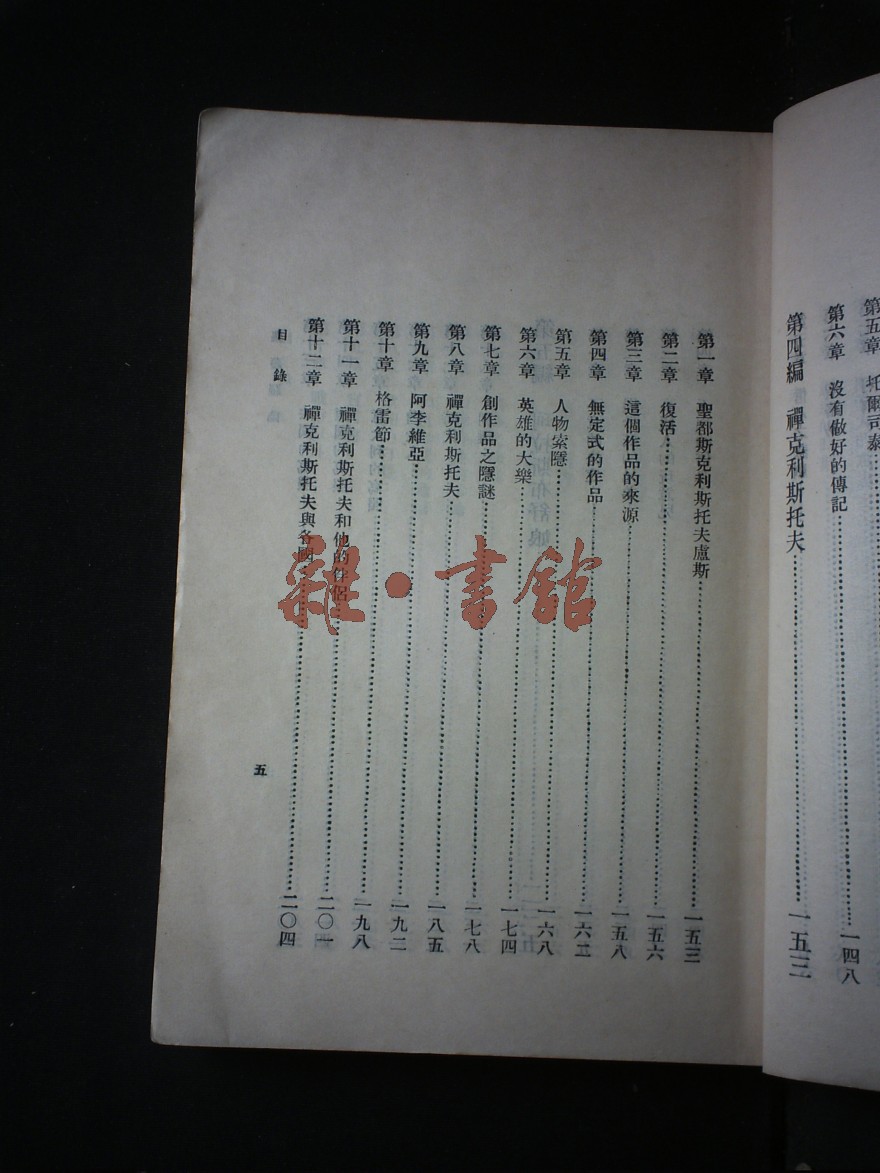 第五章　托爾司泰
第六章　沒有做好的傳記……一四八
第四編　禪克利斯托夫……一五三
第一章　聖都斯克利斯托夫盧斯……一五三
第二章　復活……一五六
第三章　這個作品的來源……一五八
第四章　無定式的作品……一六二
第五章　人物索隱……一六八
第六章　英雄的大樂……一七四
第七章　創作品之隱謎……一七八
第八章　禪克利斯托夫……一八五
第九章　阿李維亞……一九二
第十章　格雷節……一九八
第十一章　禪克利斯托夫和他的伴侶……二〇一
第十二章　禪克利斯托夫與各國……二〇四
目錄
五
雜·書館